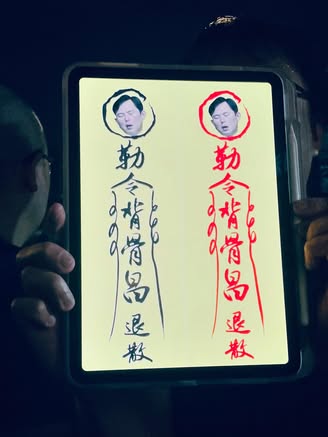 勒令背骨昌退散
勒令背骨昌退散